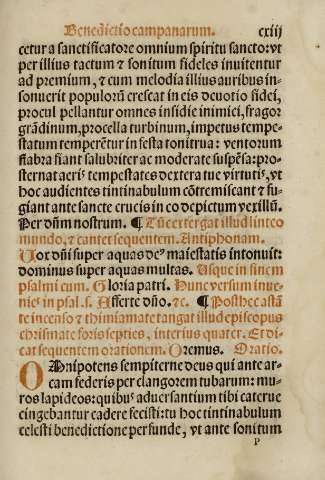 Benedictio campanarum. cxiij
cetur a sanctificatore omnium spiritu sancto: vt
per illius tactum ⁊ sonitum fideles inuitentur
ad premium, ⁊ cum melodia illius auribus in-
sonuerit populorū crescat in eis deuotio fidei,
procul pellantur omnes insidie inimici, fragor
grādinum, procella turbinum, impetus tempe-
statum temperētur infesta tonitrua: ventorum
flabra fiant salubriter ac moderate suspēsa: pro-
sternat aeris tempestates dextera tue virtutis, vt
hoc audientes tintinabulum cōtremiscant ⁊ fu-
giant ante sancte crucis in eo depictum vexillū.
Per dn̄m nostrum. ¶ Tūc extergat illud linteo
mundo, ⁊ cantet sequentem. Antiphonam.
Vox dn̄i super aquas deꝰ maiestatis intonuit:
dominus super aquas multas. Usque in finem
psalmi cum. Gloria patri. Hunc versum inue-
nies in psal. s. Afferte dn̄o. ⁊c. ¶ Posthec astā-
te incenso ⁊ thimiamate tangat illud episcopus
chrismate foris septies, interius quater. Et di-
cat sequentem orationem. Oremus. Oratio.
OMnipotens sempiterne deus qui ante ar-
cam federis per clangorem tubarum: mu-
ros lapideos: quibꝰ aduersantium tibi caterue
cingebantur cadere fecisti: tu hoc tintinabulum
celesti benedictione perfunde, vt ante sonitum
P